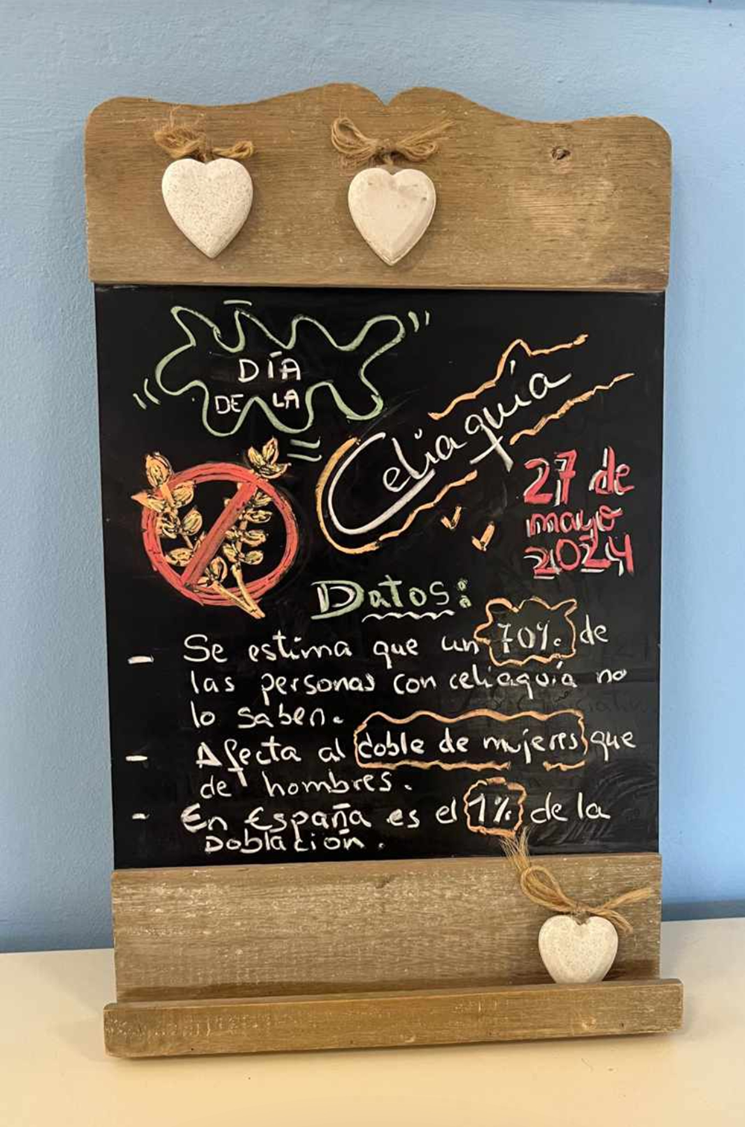 DÍA
DE LA
Celiaquía
27 de
mayo
2024
Datos:
- Se estima que un 70% de
las personas con celiaquía no
lo saben.
- Afecta al doble de mujeres que
de hombres.
- En España es el 1% de la
población.